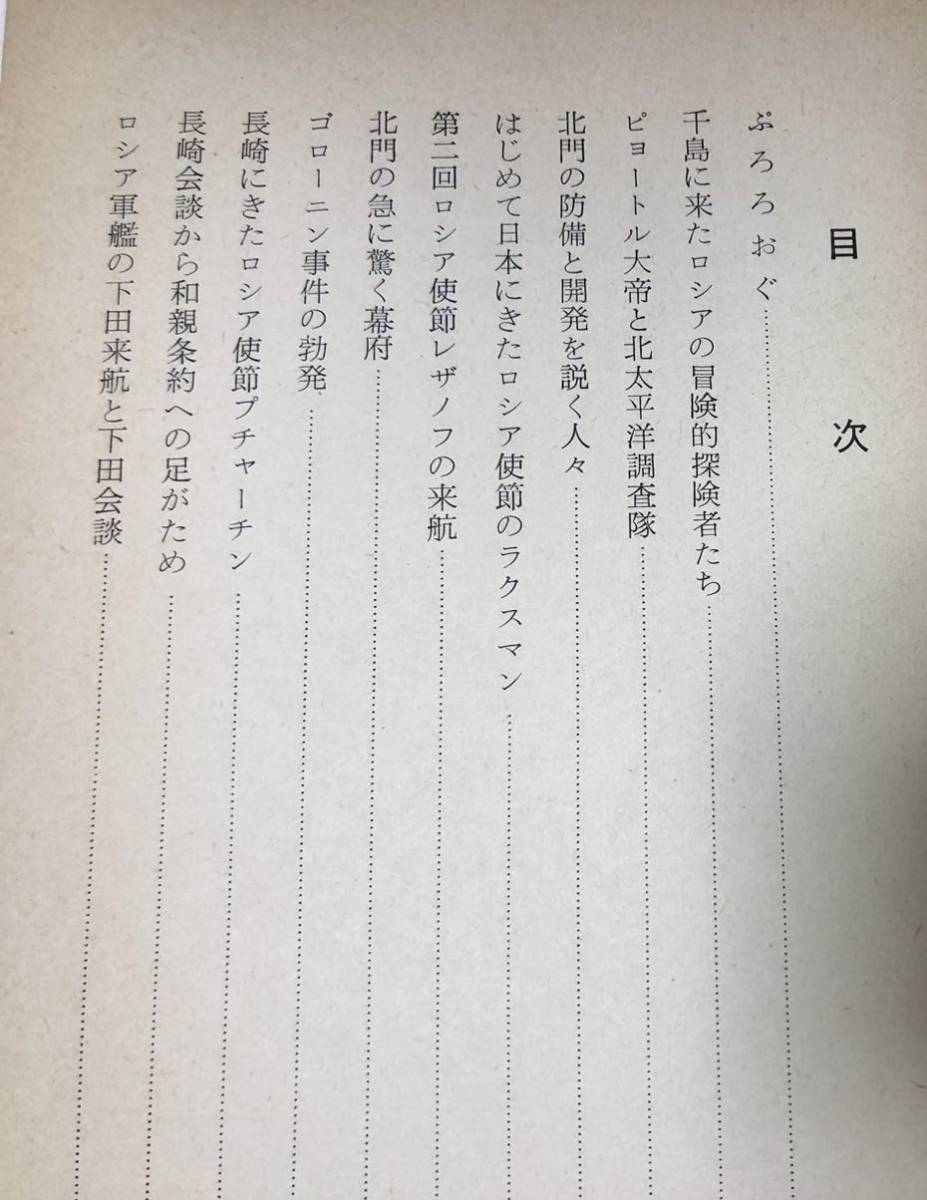 目次
ぷろろおぐ
千島に来たロシアの冒険的探険者たち
ピョートル大帝と北太平洋調査隊
北門の防備と開発を説く人々
はじめて日本にきたロシア使節のラクスマン
第二回ロシア使節レザノフの来航
北門の急に驚く幕府
ゴローニン事件の勃発
長崎にきたロシア使節プチャーチン
長崎会談から和親条約への足がため
ロシア軍艦の下田来航と下田会談